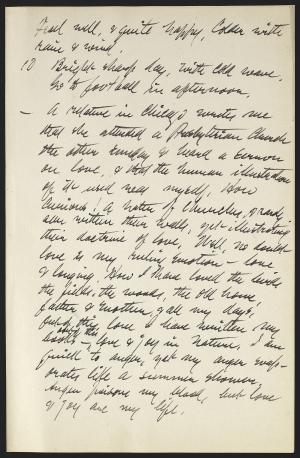 Feel well, & quite happy, Colder with
rain & wind.
10 Bright sharp day, with cold wave.
Go to foot ball in afternoon.
— A relative in Chicago writes me
that she attended a Presbyterian Church
the other Sunday & heard a sermon
on love, & that the human illustration
of it used was myself, How
curious! A hater of Churches, &
their walls, yet illustrating
their doctrine of love, Well, no doubt
love is my ruling emotion — love
& longing. How I have loved the birds
the fields, the woods, the old home,
father & mother, & all my days,
out of this love I have written my
books — love & joy in Nature, I am
quick to anger, yet my anger evap-
orates like a summer shower,
Anger poisons my blood, but love
& joy are my life.